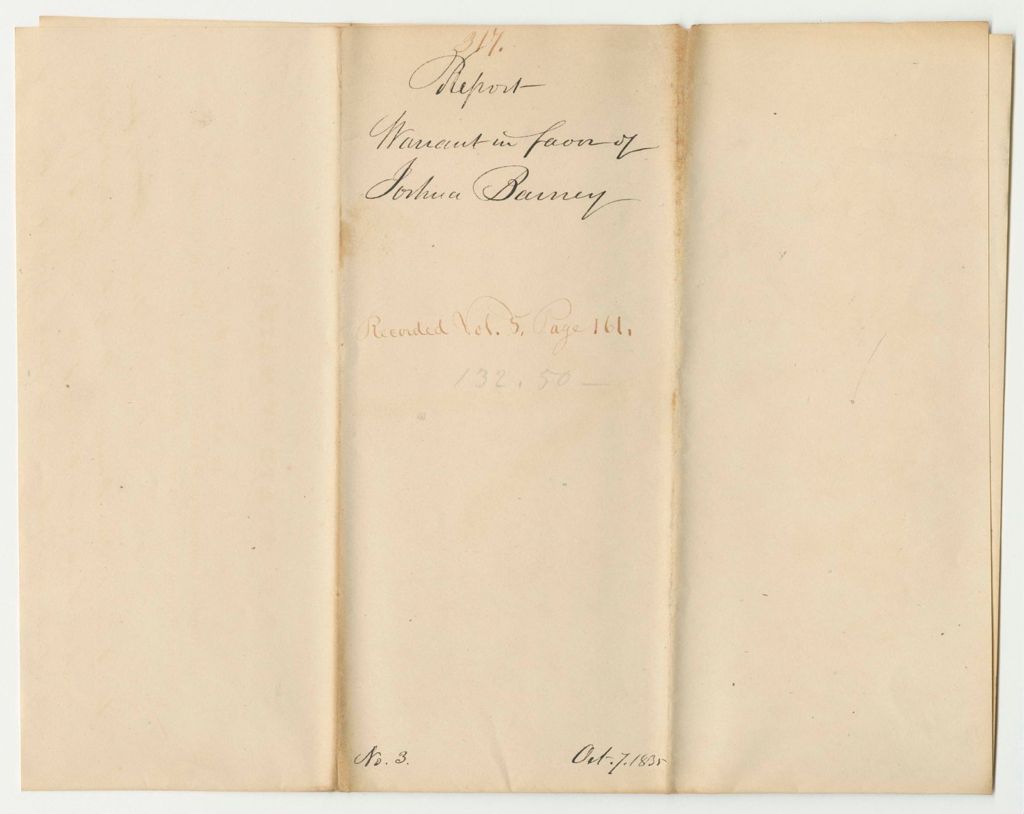 317.
Report
Warrant in favor of
Joshua Barney
Recorded Vol. 5. Page 161.
132.50
No. 3.
Oct. 7. 1835